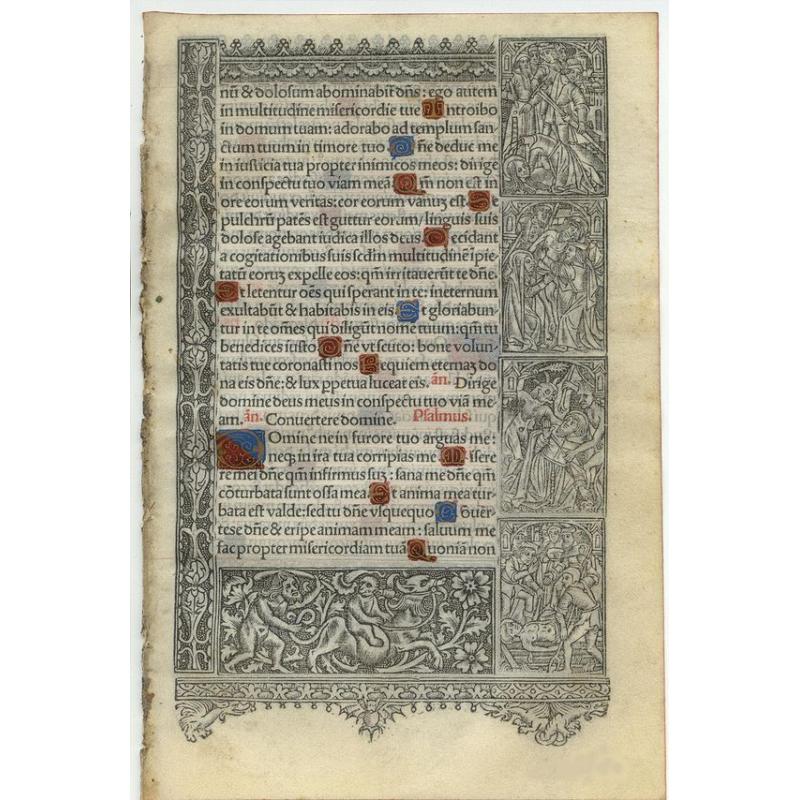 nū & dolosum abominabit dñs : ego autem
in multitudine misericordie tue Introibo
in domum tuam: adorabo ad templum san-
ctum tuum in timore tuo Dñe deduc me
in iusticia tua propter inimicos meos: dirige
in conspectu tuo viam meā Qm̄ non est in
ore eorum veritas: cor eorum vanuʒ est. Se
pulchrū patēs est guttur eorum/ linguis suis
dolose agebant iudica illos deus. Decidant
a cogitationibus suis scdm̄ multitudinē ipie-
tatū eoruʒ expelle eos: qm̄ irritauerūt te dñe.
Et letentur oēs qui sperant in te: ineternum
exultabūt & habitabis in eis. Et gloriabun-
tur in te omēs qui diligūt nomē tuum: qm̄ tu
benedices iusto. Dñe vt scuto: bone volun-
tatis tue coronasti nos Requiem eternaʒ do
na eis dñe: & lux ppetua luceat eis. añ. Dirige
domine deus meus in conspectu tuo viā me
am. añ. Conuertere domine. Psalmus.
Domine ne in furore tuo arguas me:
neq; in ira tua corripias me. Misere
re mei dñe qm̄ infirmus suʒ: sana me dñe qm̄
cōturbata sunt ossa mea. Et anima mea tur-
bata est valde: sed tu dñe vsquequo Cōuer-
tere dñe & eripe animam meam: saluum me
fac propter misericordiam tuā Quoniā non